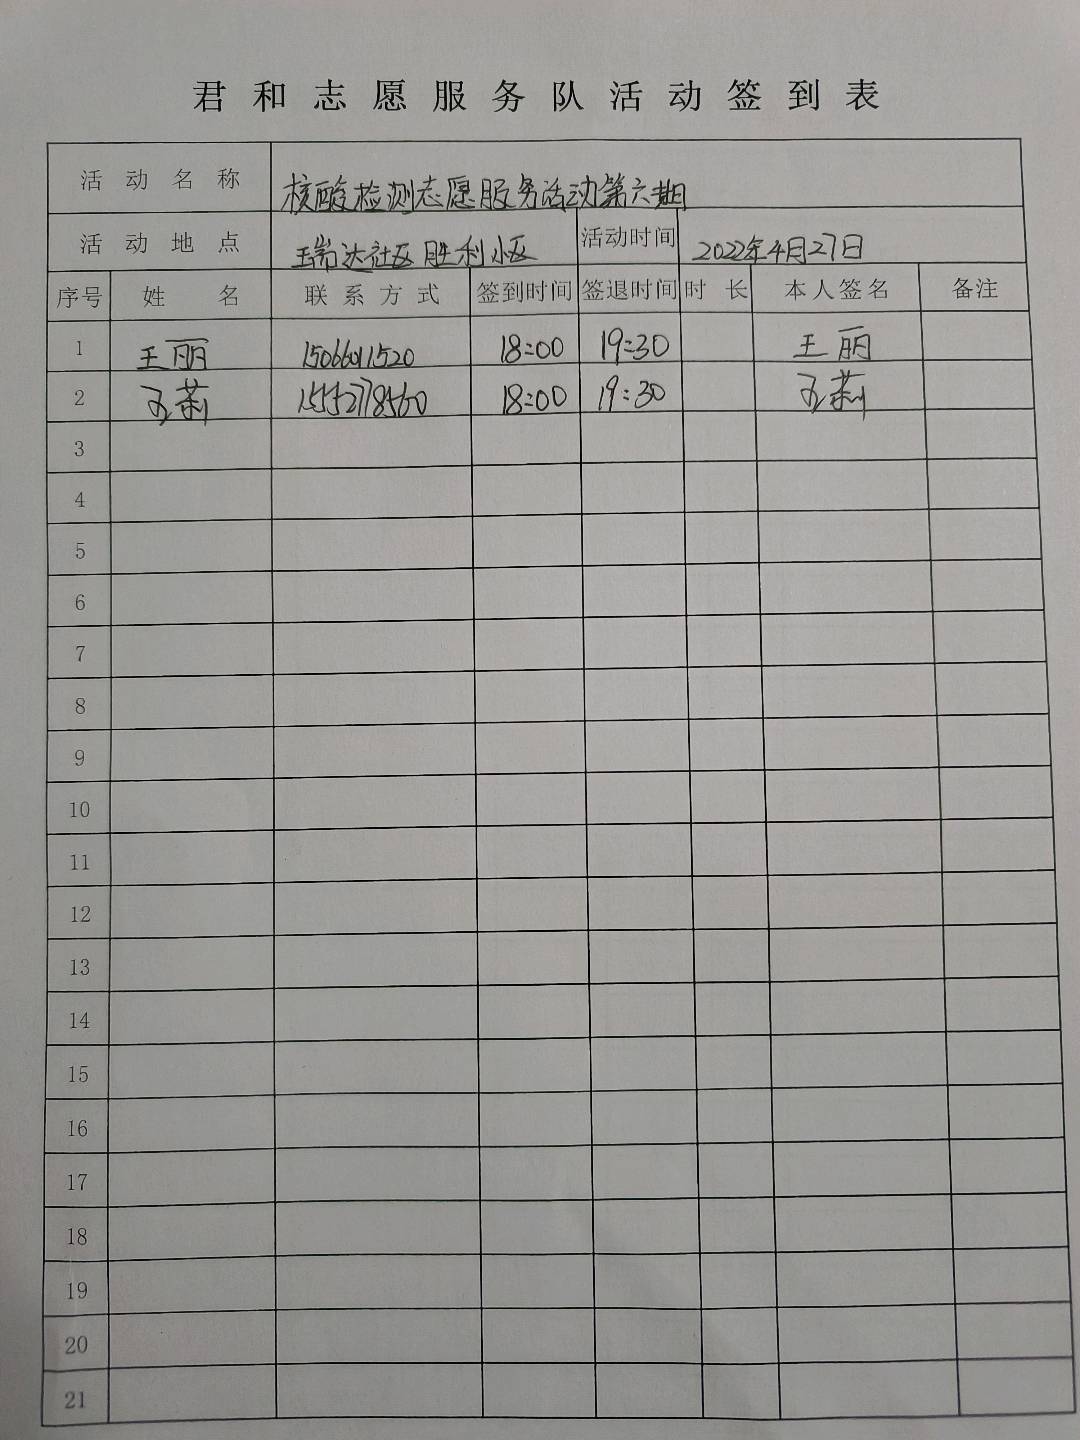 君和志愿服务队活动签到表
活动名称 核酸检测志愿服务活动第六期
活动地点 瑞达社区胜利小区 活动时间 2022年4月27日
序号 姓名 联系方式 签到时间 签退时间 时长 本人签名 备注
1 王丽 15066011520 18:00 19:30 王丽
2 莉 15552778560 18:00 19:30 莉
3
4
5
6
7
8
9
10
11
12
13
14
15
16
17
18
19
20
21